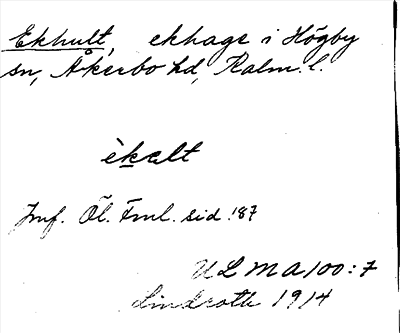 Ekhult, ekhage i Högby
sn, Åkerbo hd, Kalm. l.
èkalt
Jmf. Öl. Fml. sid. 187
ULMA 100:7
Lindroth 1914